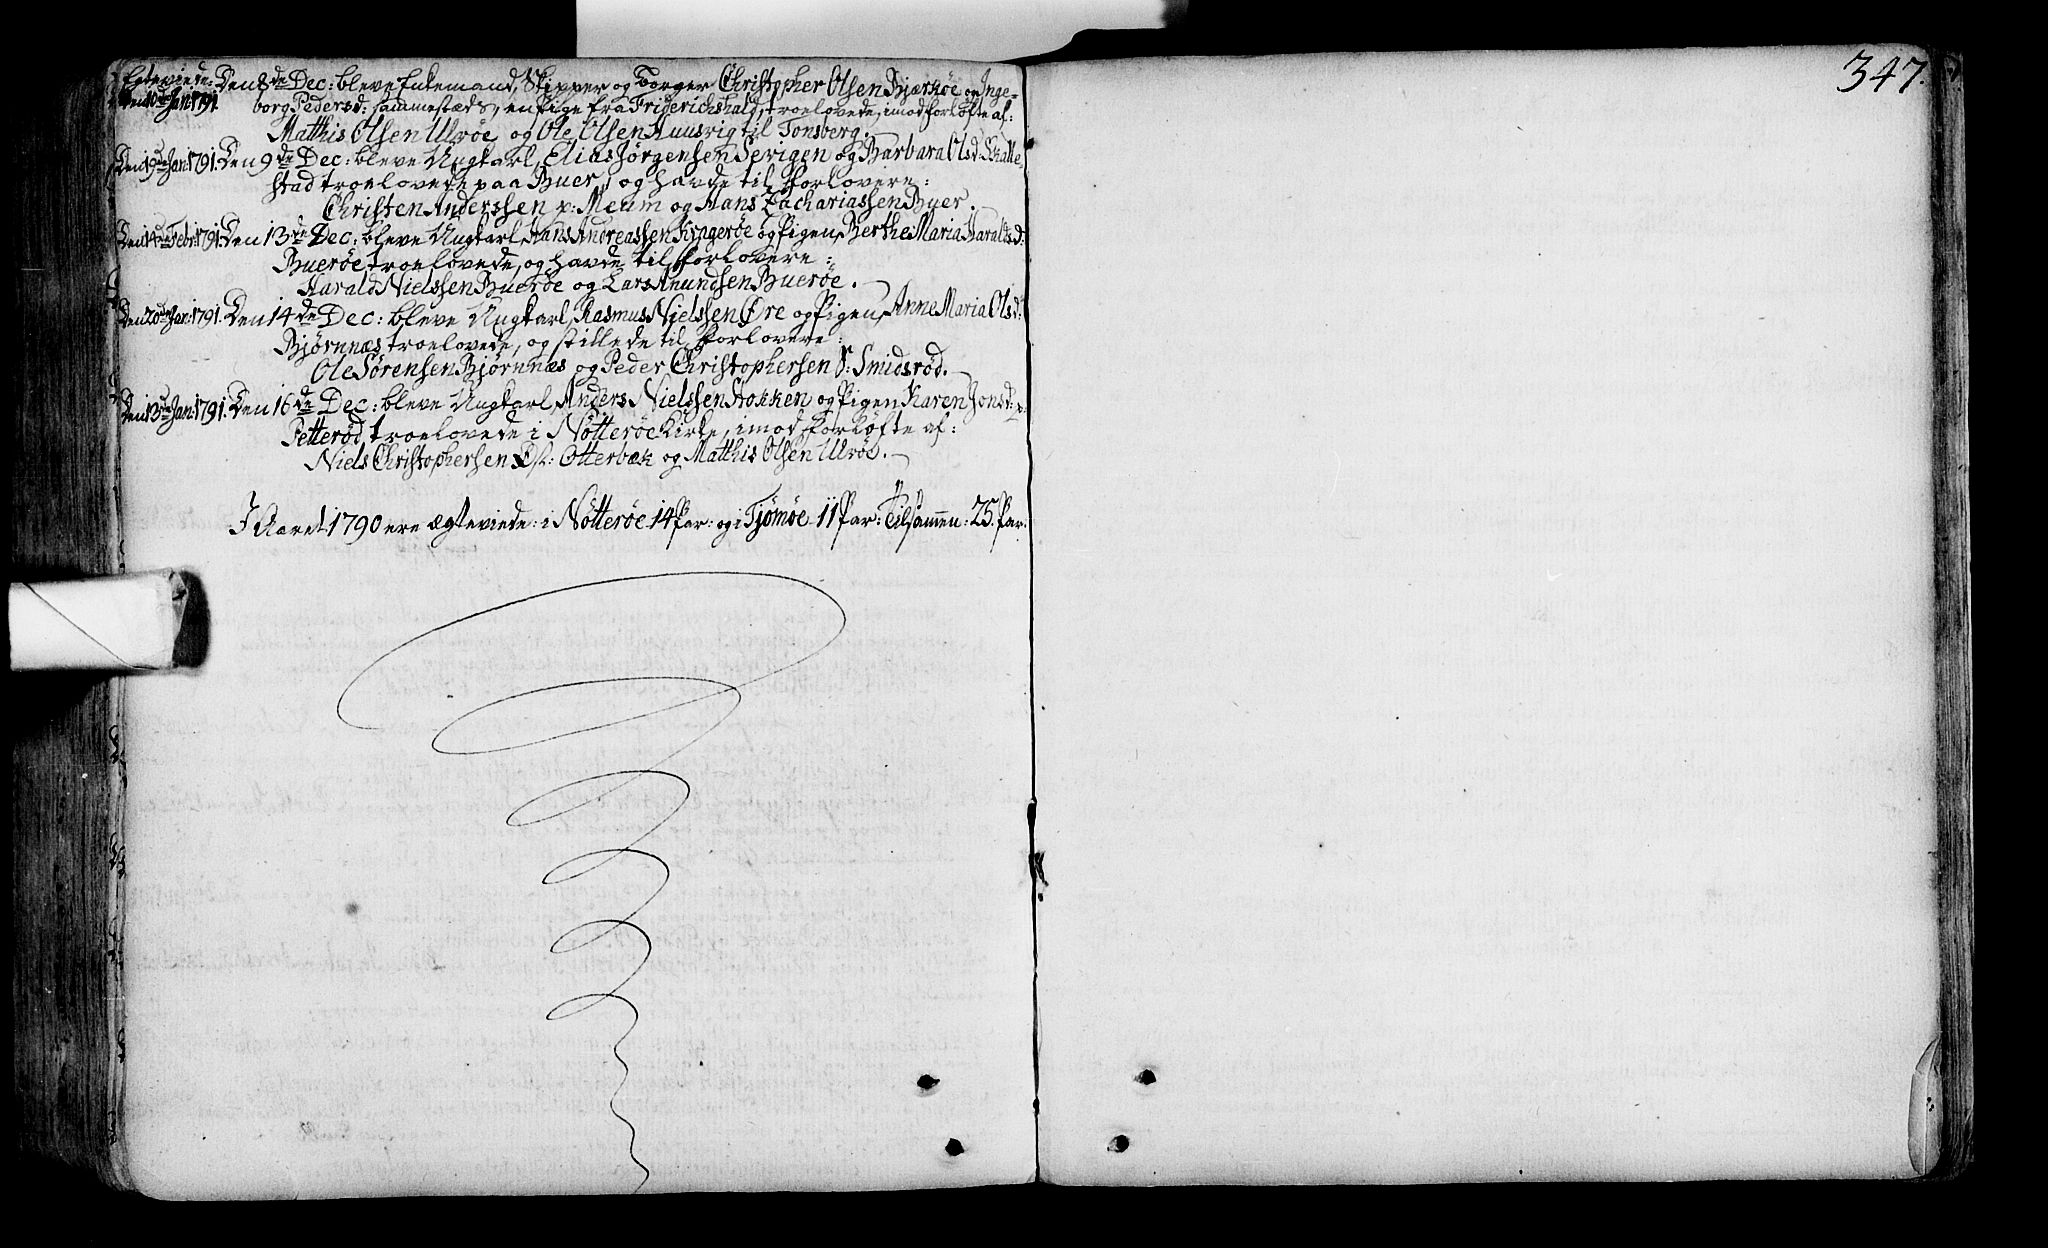 347.
Egteviede: Den 8de Dec: bleve Enkemand, Skipper og Borger Christopher Olsen Bjerköe og Inge-
den 10de Jan: 1791. borg Pedersd: sammestæds, en Pige fra Friderichshald, troelovede, imod Forløfte af:
Matthis Olsen Ulvöe og Ole Olsen Huusvig til Tonsberg.
Den 19de Jan: 1791. Den 9de Dec: bleve Ungkarl, Elias Jörgensen Serigen og Barbara Olsd. Skalle-
stad troelovede paa Buer, og havde til Forlovere:
Christen Anderssen p: Meum og Hans Zachariassen Buer.
Den 14de Febr: 1791. Den 13de Dec: bleve Ungkarl, Hans Andreassen Kingeröe og Pigen, Berthe Maria Haralds d:
Bueröe troelovede, og havde til Forlovere:
Harald Nielssen Bueröe og Lars Anundsen Bueröe.
Den 20de Jan: 1791. Den 14de Dec: bleve Ungkarl, Rasmus Nielssen Øre og Pigen, Anne Maria Olsd:
Bjørnnæs troelovede, og stillede til Forlovere:
Ole Sørensen Bjørnnæs og Peder Christophersen S: Smidsrød.
Den 13de Jan: 1791. Den 16de Dec: bleve Ungkarl, Anders Nielssen Hokken og Pigen Karen Jonsd: p:
Petterød, troelovede i Nötteröe Kirke, imod Forløfte af:
Niels Christophersen Øst: Otterbæk og Matthis Olsen Ulvöe.
I Aaret 1790 ere ægteviede: i Nötteröe 14 Par: og i Tjömöe 11 Par: Tilsammen: 25. Par.